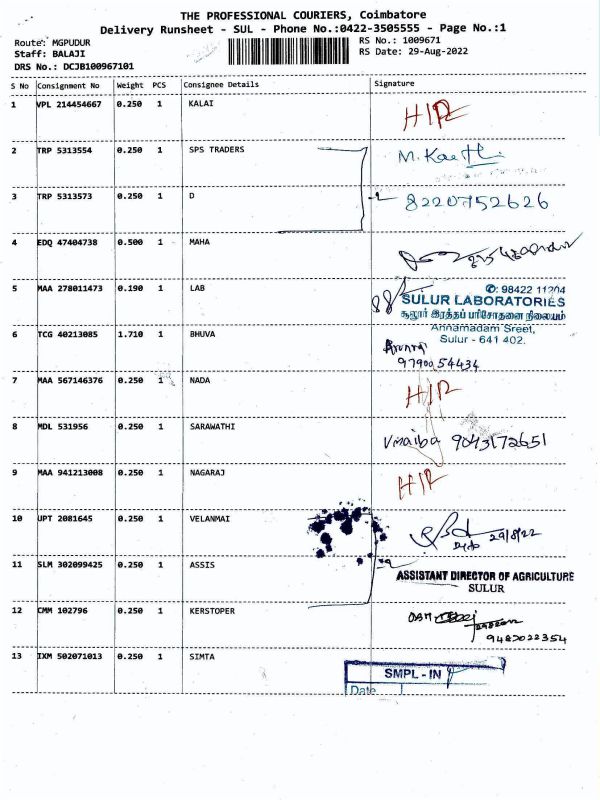 THE PROFESSIONAL COURIERS, Coimbatore
Delivery Runsheet - SUL - Phone No.:0422-3505555 - Page No.:1
Route: MGPUDUR
Staff: BALAJI
DRS No.: DCJB100967101
RS No.: 1009671
RS Date: 29-Aug-2022
S No Consignment No Weight PCS Consignee Details Signature
1 VPL 214454667 0.250 1 KALAI
2 TRP 5313554 0.250 1 SPS TRADERS
3 TRP 5313573 0.250 1 D 8220752626
4 EDQ 47404738 0.500 1 MAHA
5 MAA 278011473 0.190 1 LAB
✆: 98422 11204
SULUR LABORATORIES
சூலூர் இரத்தப் பரிசோதனை நிலையம்
Annamadam Sreet,
Sulur - 641 402.
6 TCG 40213085 1.710 1 BHUVA
97900 54434
7 MAA 567146376 0.250 1 NADA
8 MDL 531956 0.250 1 SARAWATHI 9043172651
9 MAA 941213008 0.250 1 NAGARAJ
10 UPT 2081645 0.250 1 VELANMAI 29/8/22
11 SLM 302099425 0.250 1 ASSIS
ASSISTANT DIRECTOR OF AGRICULTURE
SULUR
12 CMM 102796 0.250 1 KERSTOPER
9487022354
13 IXM 502071013 0.250 1 SIMTA
SMPL - IN
Date